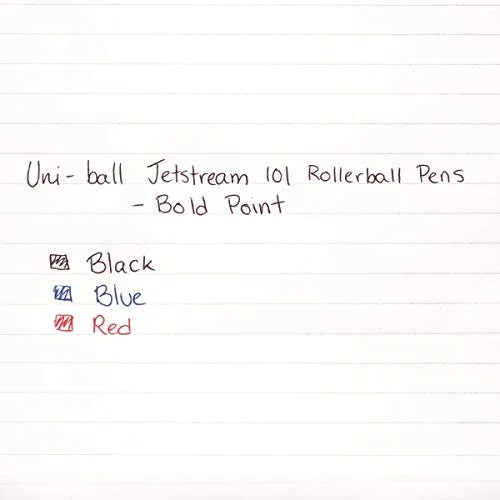 Uni-ball Jetstream 101 Rollerball Pens
- Bold Point
Black
Blue
Red